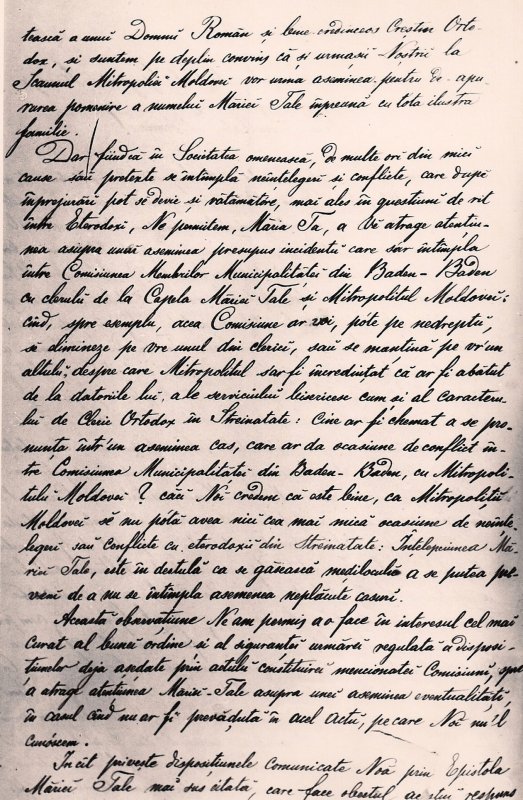 tească a unui Domnŭ Român și bine credinceos Creștin Orto-
dox, și suntem pe deplin convinș că și urmasii Nostrii la
Scaunul Mitropoliei Moldovei vor urma aseminea pentru
rarea pomenire a numelui Măriei Tale împreună cu tóta ilustra
familie.
Dar fiindcă în Societatea omenească, de multe ori din mici
cause sau pretexte se întimplă neintelegeri și conflicte, care după
înprejurări pot să devie și vatămătóre, mai ales în questiuni de rit
între Eterodoxi, Ne permitem, Măria Ta, a Vĕ atrage atentiu-
nea asupra unui aseminea presupus incidentŭ care s'ar întimpla
între Comisiunea Membrilor Municipalitătei din Baden-Baden
cu clerulŭ de la Capela Măriei Tale și Mitropolitul Moldovei:
cînd, spre esemplu, acea Comisiune ar voi, póte pe nedreptŭ,
să dimineze pe vre unul din clerici, sau se mantină pe vr'un
altulŭ, despre care Mitropolitul s'ar fi încredințat că ar fi abătut
de la datoriile lui, ale serviciului bisericesc cum și al Caracteru-
lui de Cleric Ortodox în Streinatate: Cine ar fi chemat a se pro-
nunta într'un asemenea cas, care ar da ocasiune de conflict în-
tre Comisiunea Municipalitatei din Baden-Baden, cu Mitropoli-
tului Moldovei? căci Noi credem că este bine, ca Mitropolitŭ
Moldovei să nu pótă avea nici cea mai mică ocasiune de neînte-
legeri sau conflicte cu eterodoxii din Streinatate: Intelepciunea Mă-
riei Tale, este în destulă ca se găsească mediloculŭ a se putea pre-
veni de a nu se întimpla asemenea neplăcute casuri.
Această observațiune Ne am permis a o face în interesul cel mai
curat al bunei ordine și al sigurantei urmărei regulată a disposi-
tiunelor deja asedate prin actulŭ constituirei mencionatei Comisiuni, spre
a atrage atintiunea Măriei-Tale asupra unei aseminea eventualităti,
în casul cînd nu ar fi prevăduta în acel actu, pe care Noi nu'l
cunóscem.
In cit privește dispositiunele comunicate Noă prin Epistola
Măriei Tale mai sus citată, care face obectul